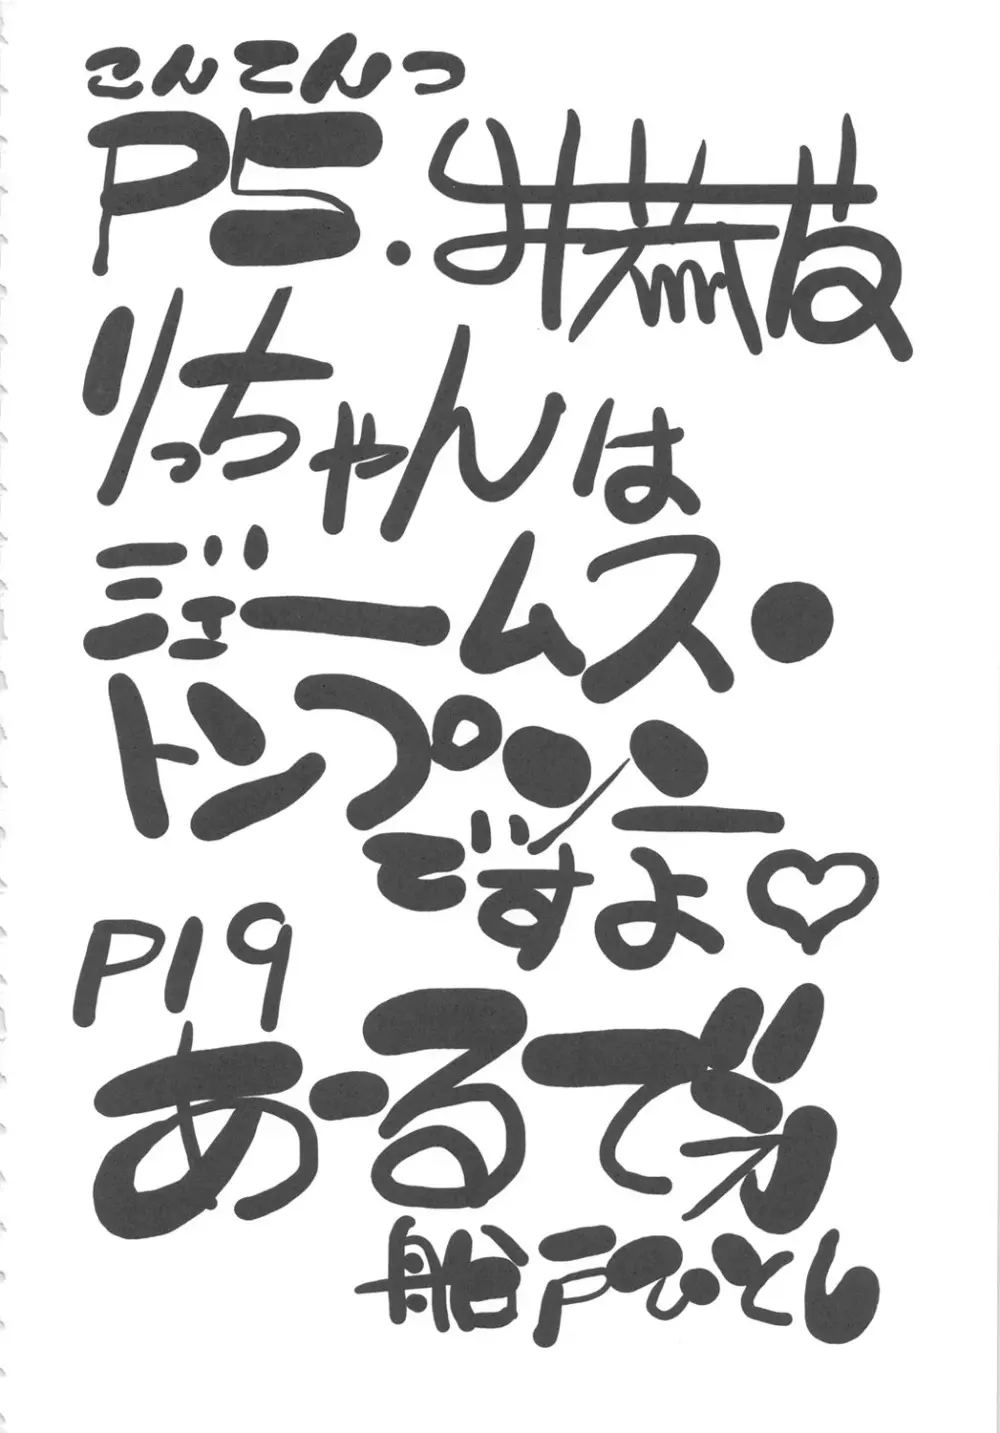 こんてんつ
P5.
りっちゃんは
ジェームス・
トンプソン
ですよ♡
P19
あーるで
船戸ひとし